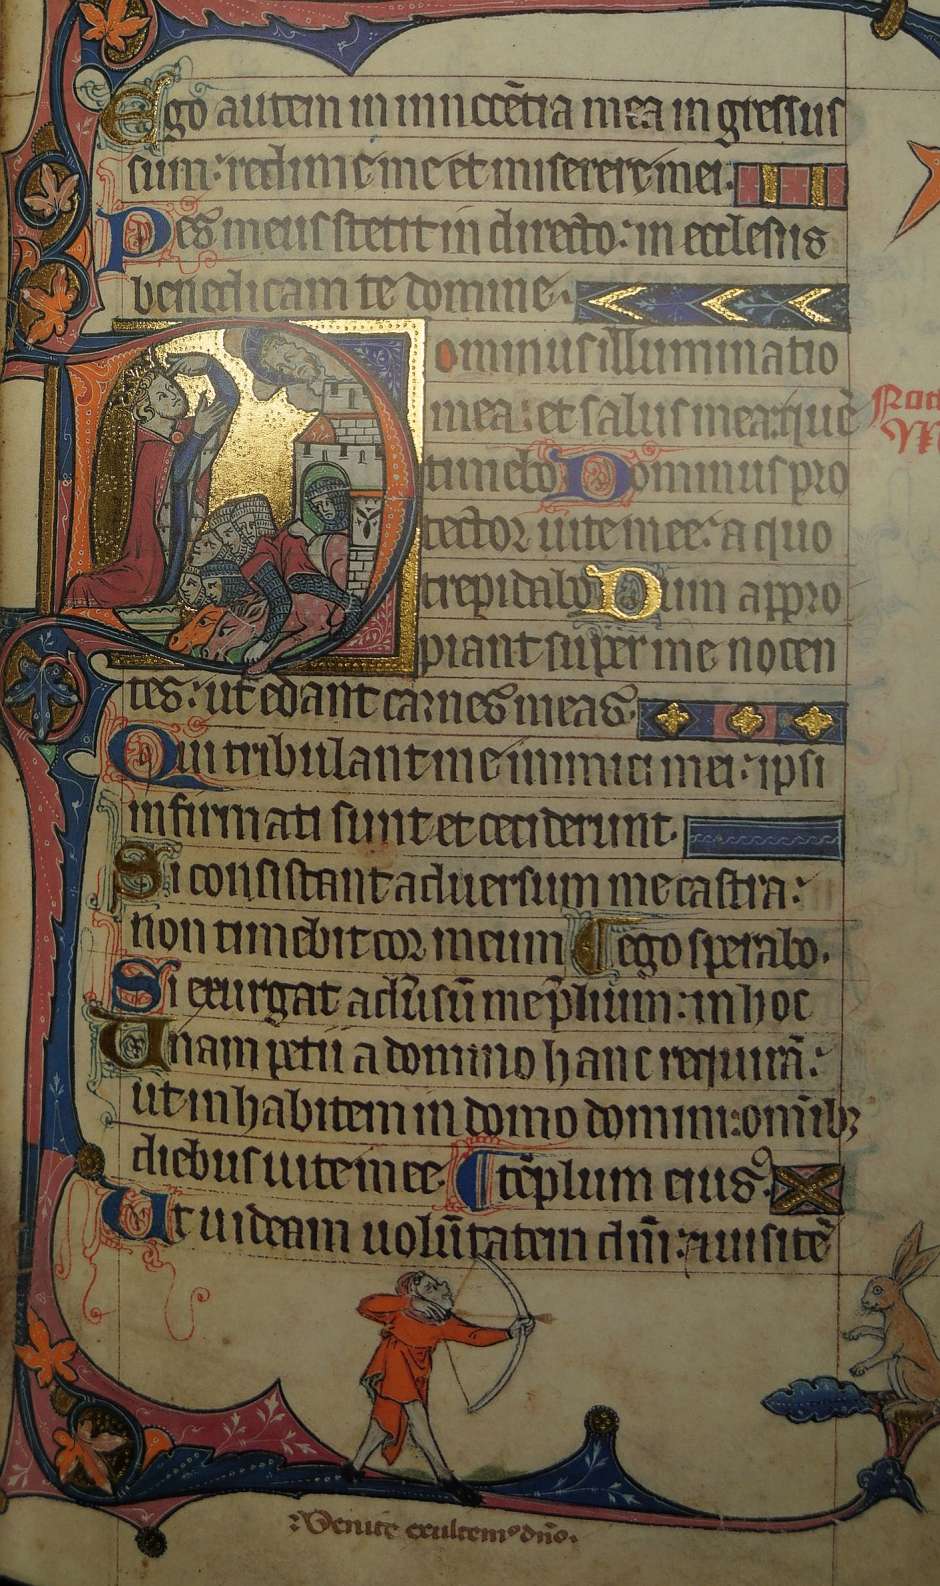 Ego autem in innocẽtia mea in gressus
sum: redime me et miserere mei.
Pes meus stetit in directo: in ecclesiis
benedicam te domine.
Dominus illuminatio
mea: et salus mea: quẽ
timebo Dominus pro
tector uite mee: a quo
trepidabo Dum appro
piant super me nocen
tes: ut edant carnes meas.
Qui tribulant me inimici mei: ipsi
infirmati sunt et ceciderunt.
Si consistant aduersum me castra:
non timebit cor meum ego sperabo.
Si exurgat aduˀsũ me p̃lium: in hoc
Unam petii a domino hanc requirã:
ut inhabitem in domo domini: omĩbꝫ
diebus uite mee. tẽplum eiusˀ.
Ut uideam uolũtatem dñi: ⁊ uisitẽ
Venite exultemꝰ dño.